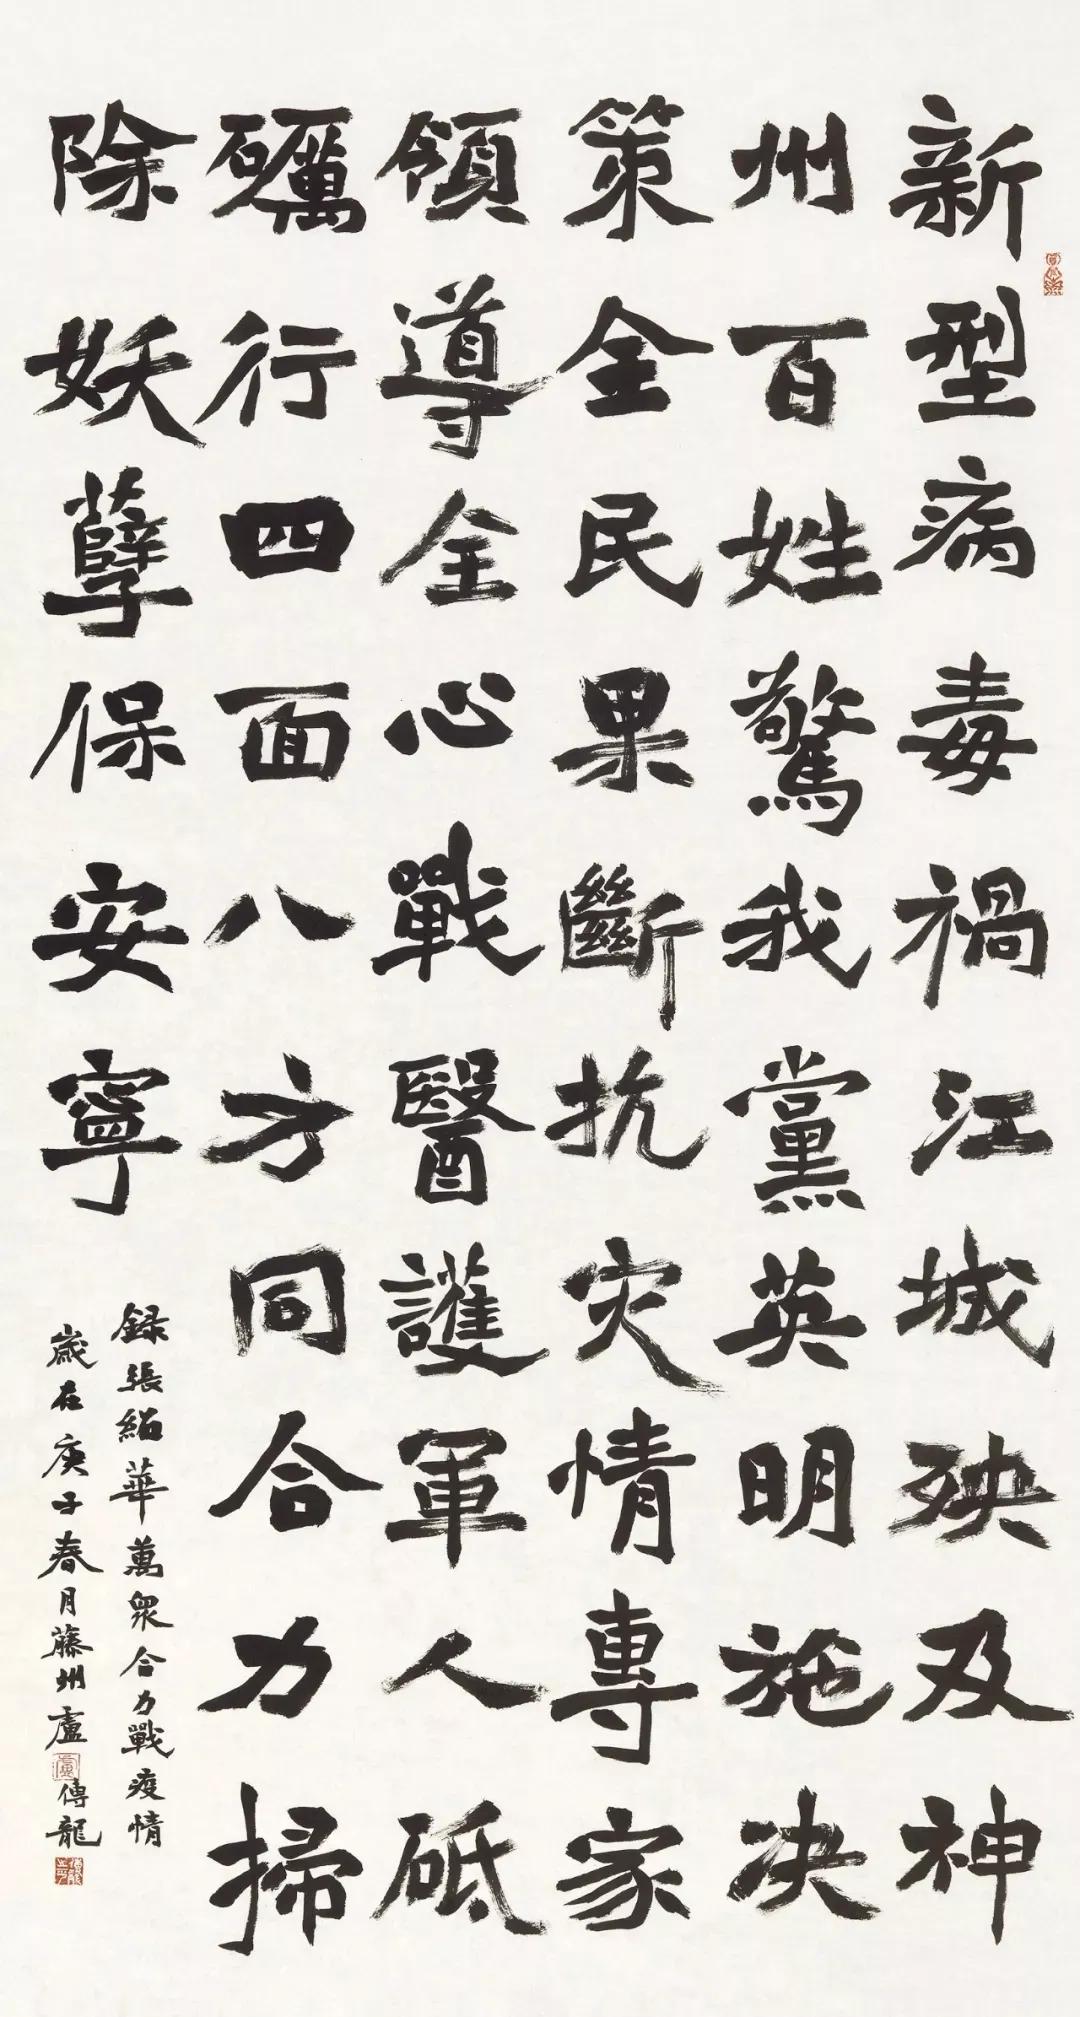 新型病毒禍江城殃及神
州百姓驚我黨英明施决
策全民果斷抗灾情專家
領導全心戰醫護軍人砥
礪行四面八方同合力掃
除妖孽保安寧
録張紹華萬衆合力戰疫情
歲在庚子春月藤州盧傳龍